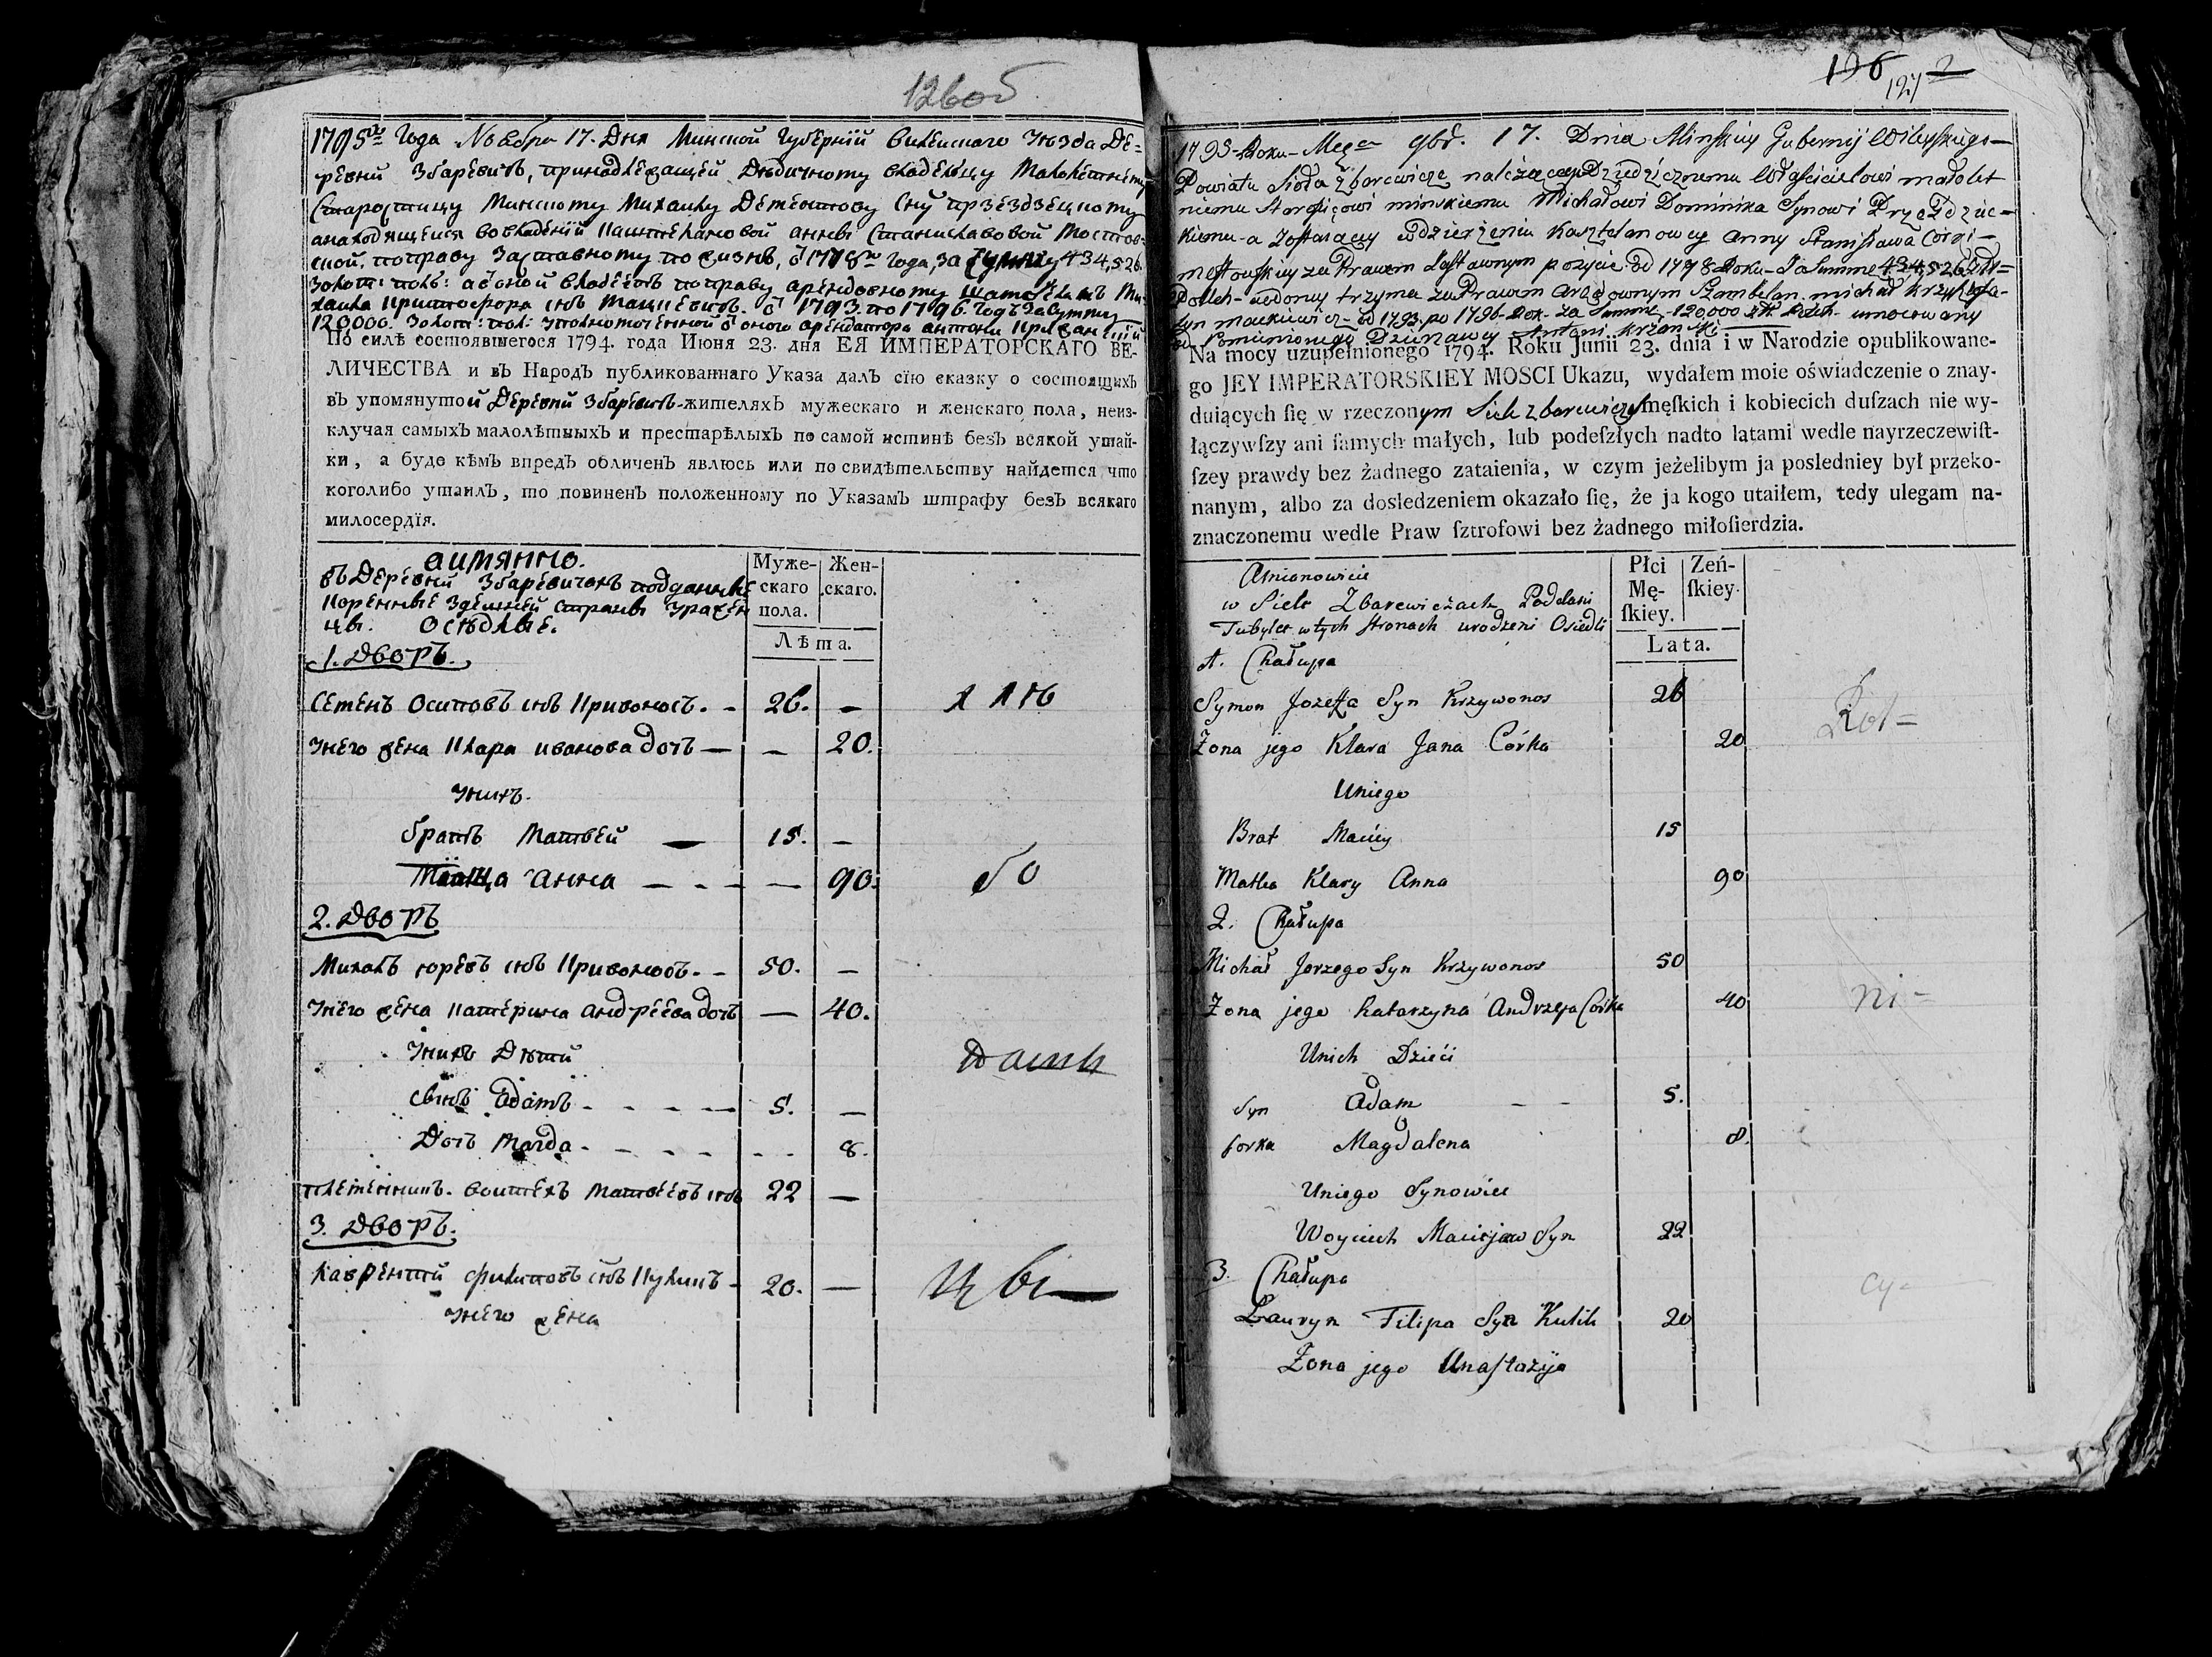 126об
1795го Года Ноября 17. Дня Минской Губернїй Вилейскаго Уѣзда Де=
ревни Збаревичъ, принадлежащей Дѣдичному владѣльцу Малолѣтнему
Старостицу Минскому Михайлу Доминикову сну Прзездзецкому
а находящейся во владѣнїй Каштеляновой Анны Станиславовой Мостов=
ской, по праву заставному по жизнь, о 1778го Года, за Сумму 434,526.
Золот: пол: а оной владѣетъ по праву арендовному Шамбелянъ Ми=
хайла Криштофора снъ Мацкевичъ. о 1793. по 1796. Годъ за Сумму
120,000. Золот: пол: Уполномоченной о оного арендатора Антони Кржанскїй
По силѣ состоявшегося 1794. года Июня 23. дня ЕЯ ИМПЕРАТОРСКАГО ВЕ-
ЛИЧЕСТВА и въ Народъ публикованнаго Указа далъ сїю сказку о состоящихъ
въ упомянутой Деревни Збаревичъ жителяхъ мужескаго и женскаго пола, неиз-
ключая самыхъ малолѣтныхъ и престарѣлыхъ по самой истинѣ безъ всякой утай-
ки, а буде кѣмъ впредъ обличенъ явлюсь или по свидѣтельству найдется что
коголибо утаилъ, то повиненъ положенному по Указамъ штрафу безъ всякаго
милосердїя.
а имянно.
въ Деревни Збаревичахъ подданные
коренные здешней страны Урожен
цы. Осѣдлые.
Муже-
скаго
пола.
Жен-
скаго.
Лѣта.
1. Дворъ.
Семенъ Осиповъ снъ Кривоносъ. - 26. —
Унего жена Клара Иванова дочь — — 20.
Унихъ.
братъ Матвей — 15. —
Тїоща Анна — - - — 90.
2. Дворъ
Михалъ Юревъ снъ Кривоносъ. - 50. —
Унего жена Катерина Андреева дочь — 40.
Унихъ Дѣти
сынъ Адамъ - - - — 5. —
Дочь Магда - - - - - - 8.
племенникъ. Войтехъ Матвеевъ снъ 22 —
3. Дворъ.
Лаврентїй Филиповъ снъ Куликъ - 20. —
Унего жена
127
1795 Roku Mcą 9br. 17. Dnia Minskiey Gubernij Wileyskiego
Powiatu Sioła Zbarewicze należącey Dziedzicznemu Właścicielowi małolet
niemu Starościcowi minskiemu Michałowi Dominika Synowi Przezdziec=
kiemu a Zostaiącey w dzierżeniu Kasztelanowey Anny Stanisława Corki
mostowskiey za Prawem Zastawnym pożycie od 1778 Roku Za Summę 434,526 Złł=
Polsk aedoney trzyma za Prawem Arędownym Szambelan michał Krzysztofa
Syn mackiewicz od 1793. po 1796 Rok za Summę 120,000 złł Polsk umocowany
od Pomienionego Dzierżawcy Antoni Krżanski
Na mocy uzupełnionego 1794. Roku Junii 23. dnia i w Narodzie opublikowane-
go JEY IMPERATORSKIEY MOSCI Ukazu, wydałem moie oświadczenie o znay-
duiących ſię w rzeczonym Siele Zbarewiczach męſkich i kobiecich duſzach nie wy-
łączywſzy ani ſamych małych, lub podeſzłych nadto latami wedle nayrzeczewiſt-
ſzey prawdy bez żadnego zataienia, w czym jeżelibym ja posledniey był przeko-
nanym, albo za dosledzeniem okazało ſię, że ja kogo utaiłem, tedy ulegam na-
znaczonemu wedle Praw ſztrofowi bez żadnego miłoſierdzia.
Amianowicie
w Siele Zbarewiczach Poddani
Tubylce w tych stronach urodzeni Osiedli
Płci
Mę-
ſkiey.
Zeń-
ſkiey.
Lata.
1. Chałupa
Symon Jozeffa Syn Krzywonos 26
Żona jego Klara Jana Córka 20
Uniego
Brat Maciey 15
Matka Klary Anna 90
2. Chałupa
Michał Jerzego Syn Krzywonos 50
Żona jego Katarzyna Andrzeja Corka 40
Unich Dzieci
Syn Adam — — 5.
Corka Magdalena 8.
Uniego Synowiec
Woyciech Maciejów Syn 22
3. Chałupa
Lauryn Filipa Syn Kulik 20
Żona jego Anastazija